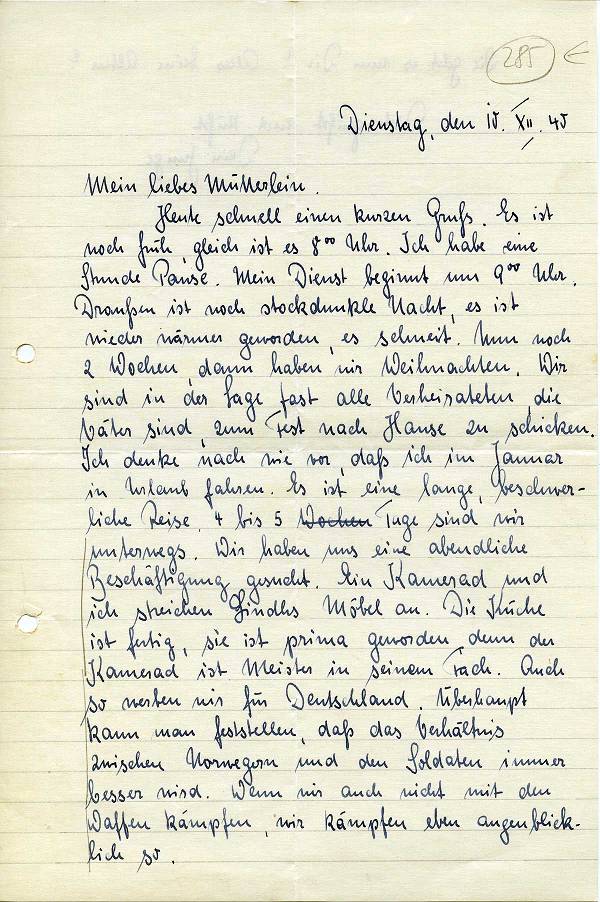 285
Dienstag, den 10. XII. 40
Mein liebes Mütterlein.
Heute schnell einen kurzen Gruß. Es ist
noch früh, gleich ist es 8⁰⁰ Uhr. Ich habe eine
Stunde Pause. Mein Dienst beginnt um 9⁰⁰ Uhr.
Draußen ist noch stockdunkle Nacht, es ist
wieder wärmer geworden, es schneit. Nun noch
2 Wochen, dann haben wir Weihnachten. Wir
sind in der Lage fast alle Verheirateten, die
Väter sind, zum Fest nach Hause zu schicken.
Ich denke nach wie vor, daß ich im Januar
in Urlaub fahren. Es ist eine lange, beschwer-
liche Reise, 4 bis 5 Wochen Tage sind wir
unterwegs. Wir haben uns eine abendliche
Beschäftigung gesucht. Ein Kamerad und
ich streichen Möbel an. Die Küche
ist fertig, sie ist prima geworden denn der
Kamerad ist Meister in seinem Fach. Auch
so werben wir für Deutschland. Überhaupt
kann man feststellen, daß das Verhältnis
zwischen Norwegern und den Soldaten immer
besser wird. Wenn wir auch nicht mit den
Waffen kämpfen, wir kämpfen eben augenblick-
lich so.